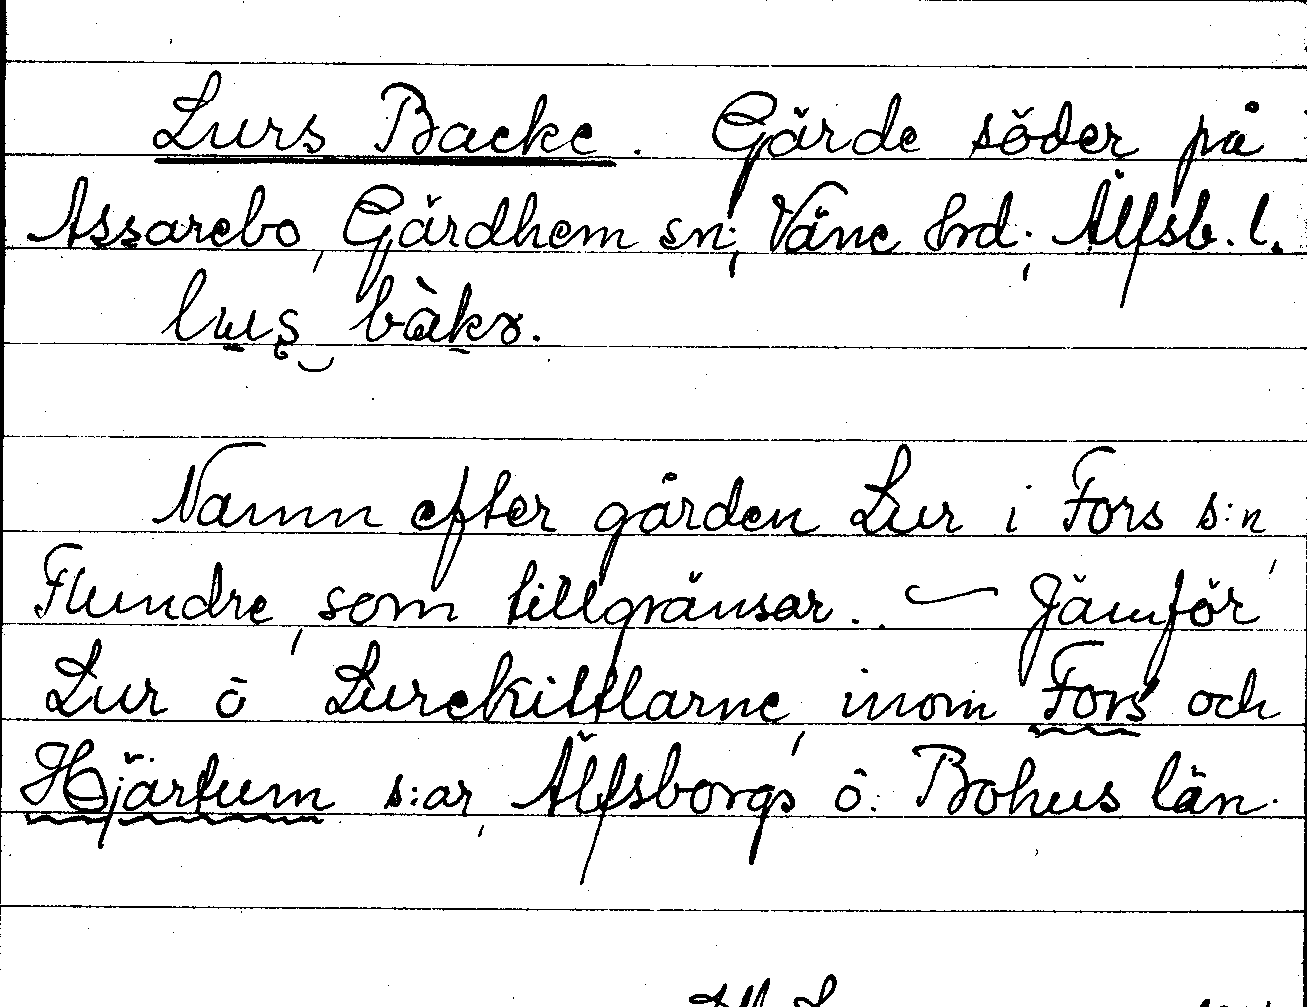 Lurs Backe. Gärde söder på
Assarebo, Gärdhem sn; Väne hrd; Älfsb. l.
Namn efter gården Lur i Fors s:n,
Flundre, som tillgränsar. — Jämför
Lur o Lurekittlarne, inom Fors och
Hjärtum s:ar, Älfsborgs o. Bohus län.